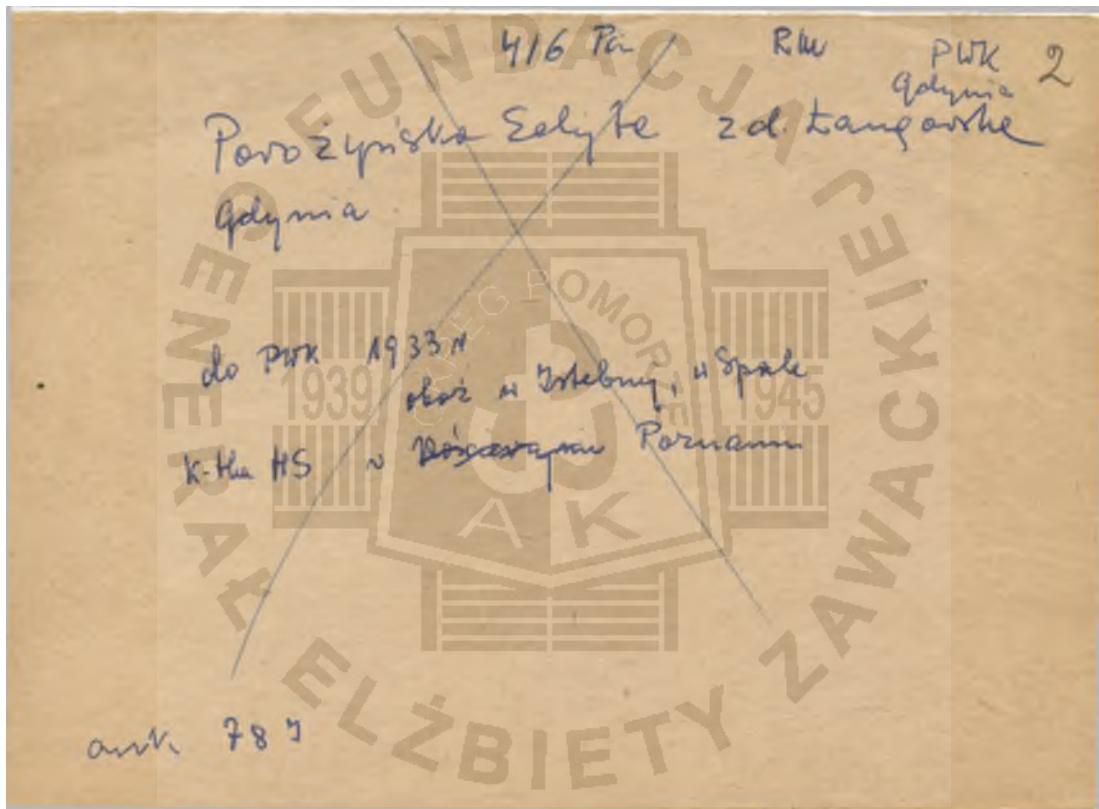 4/6 Pa RW PWK 2
Gdynia
Porożyńska Edyta z d. Łangowska
Gdynia
do PWK 1933 r
obóz w Istebnej, w Spale
K-tka HS w Poznaniu
ank 78 J
FUNDACJA GENERAŁ ELŻBIETY ZAWACKIEJ
OKRĘG POMORZE
1939 1945
AK